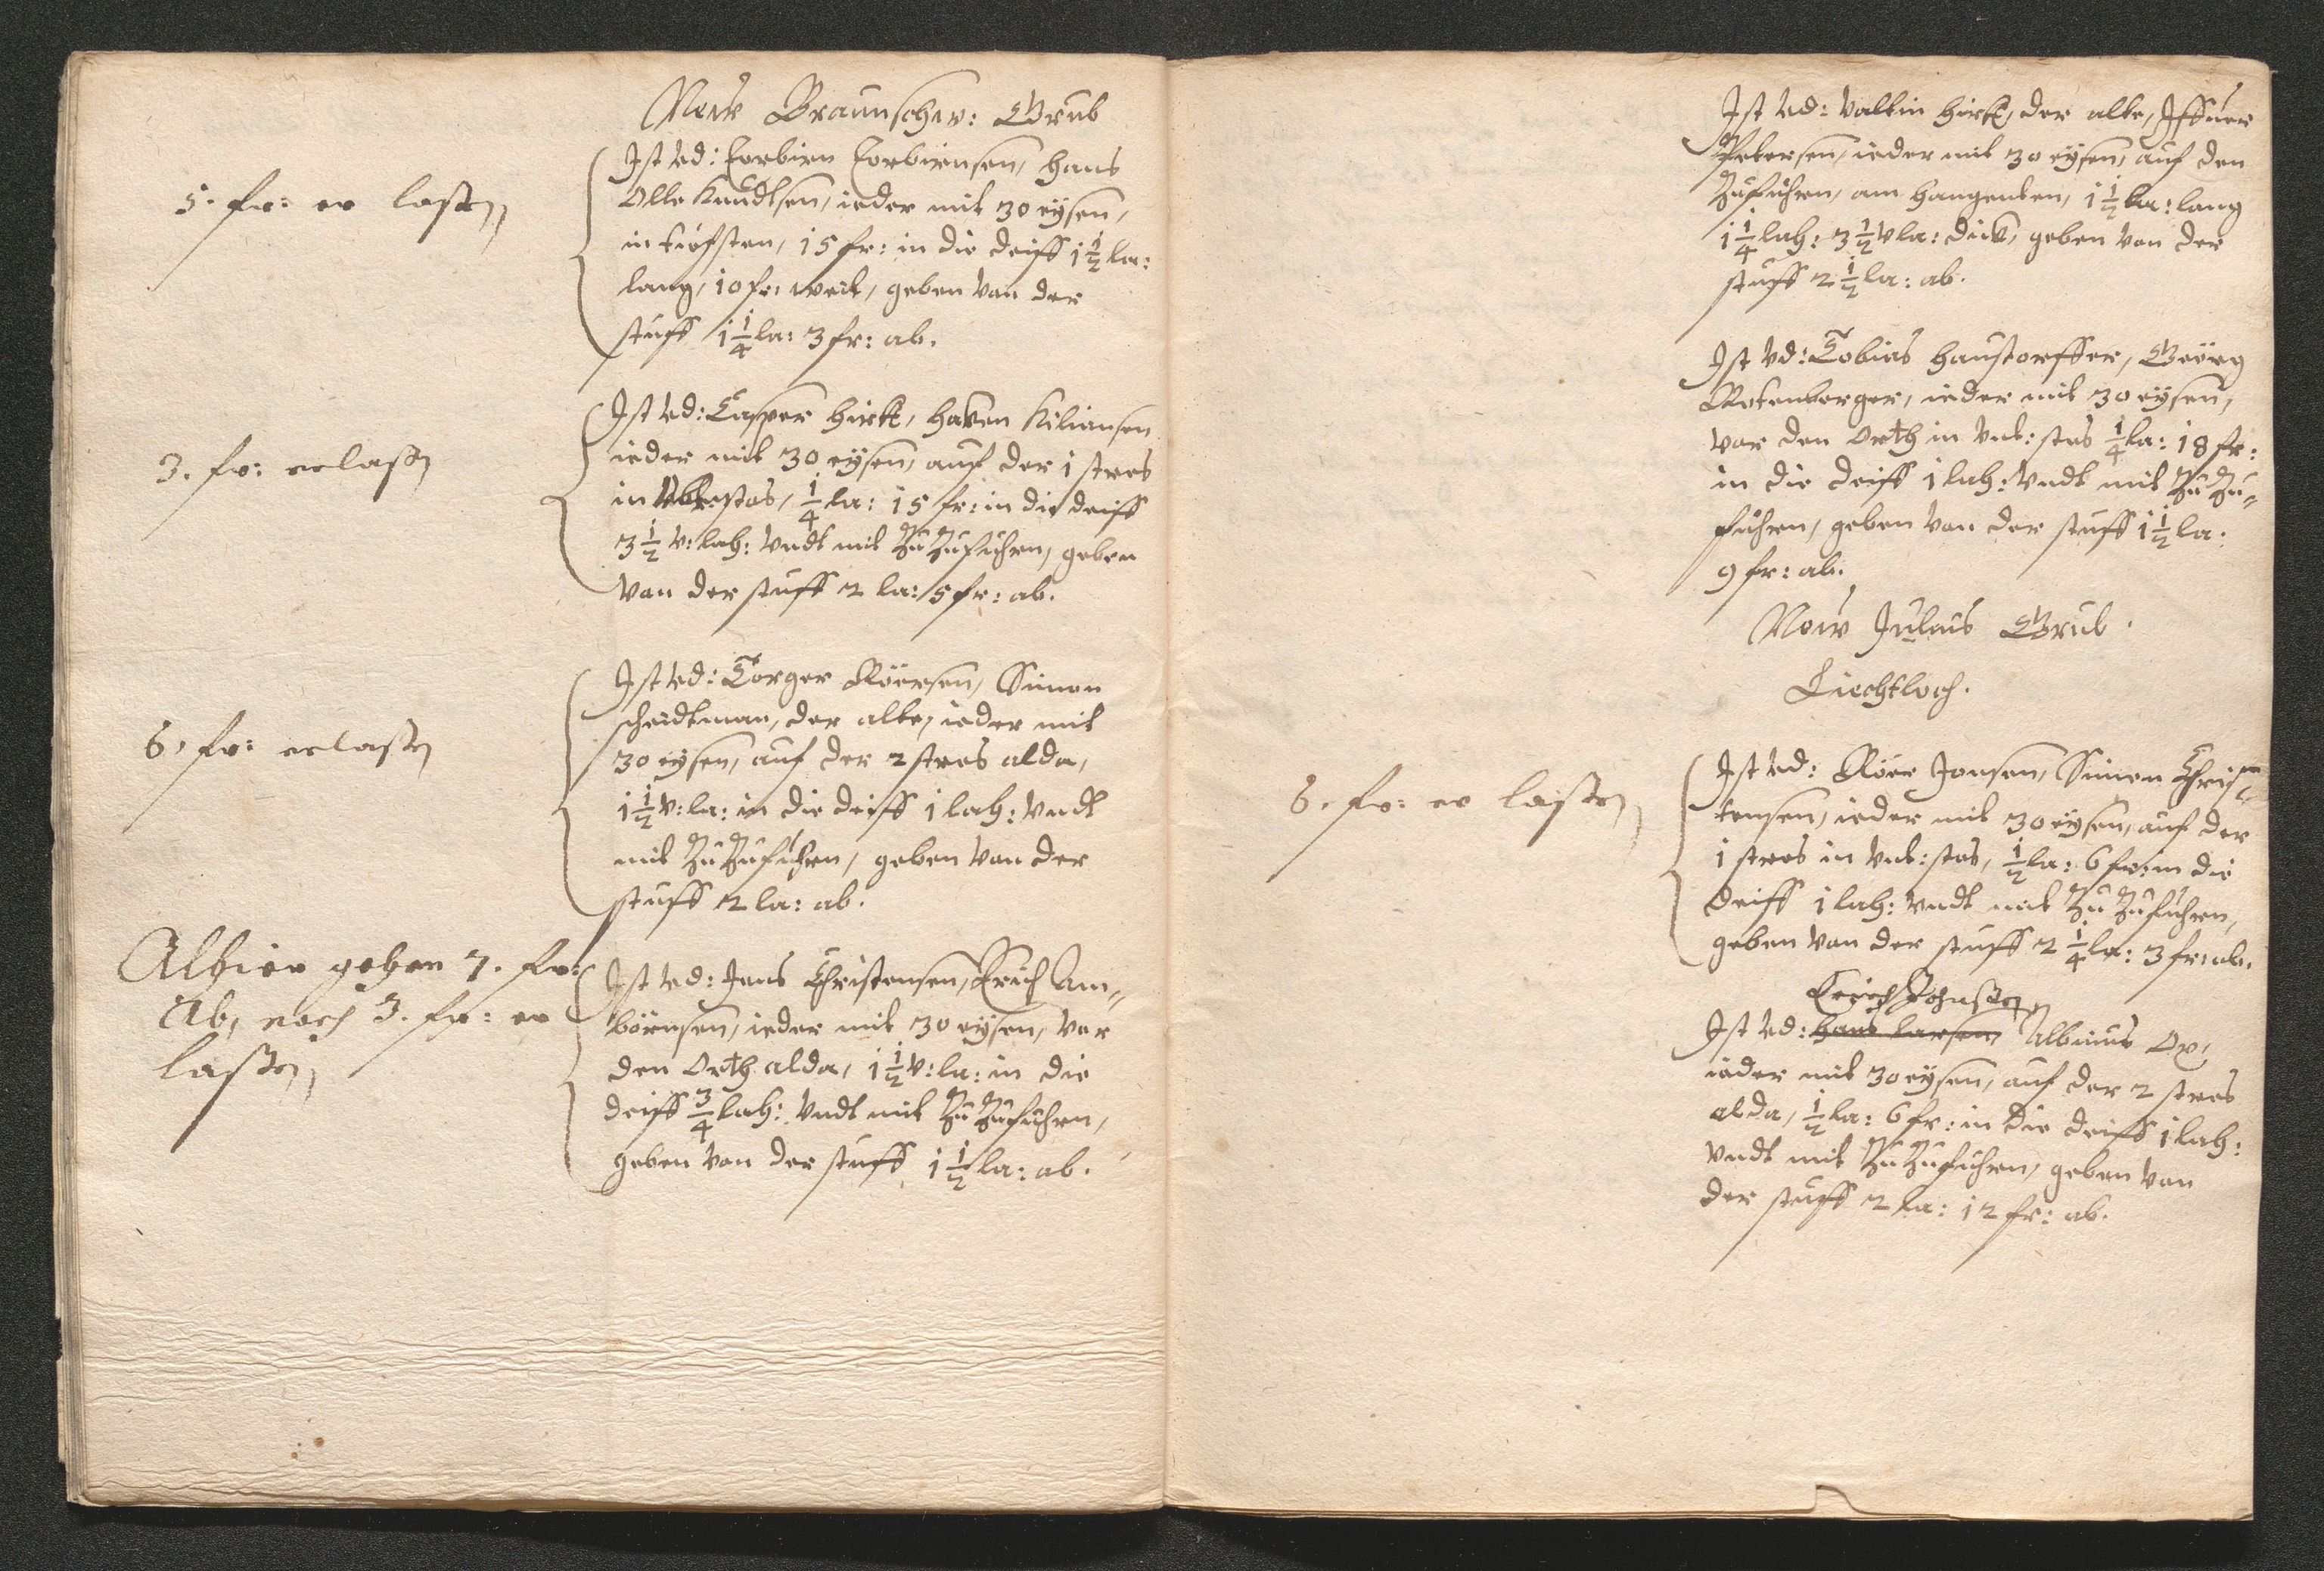 New Braunschw: Grub
5. fr: er lassen
Ist Vd: Torbirn Torbirnsen, Hans
Olle Knudtsen, ieder mit 30 eysen,
in tiefsten, 15 fr: in die deiff 1 1/2 la:
lang, 10 fr: weit, geben von der
stuff 1 1/4 la: 3 fr: ab.
3. fr: erlassen
Ist Vd: Casper Hirtt, Haken Kiliansen
ieder mit 30 eysen, auf der 1 stros
in stos, 1/4 la: 15 fr: in die deiff
3 1/2 v: lah: Vndt mit Zu Zufuhren, geben
von der stuff 2 la: 5 fr: ab.
6. fr: erlassen
Ist Vd: Torger Röersen, Simon
scheidtman, der alte, ieder mit
30 eysen, auf der 2 stros alda,
1 1/2 v: la: in die deiff 1 lah: Vndt
mit Zu Zufuhren, geben von der
stuff 2 la: ab.
Alhier geben 7. fr:
Ab, noch 3. fr: er
lassen
Ist Vd: Jens Christensen, Erich Am¬
börnsen, ieder mit 30 eysen, vor
den Orth alda, 1 1/2 v: la: in die
deiff 3/4 lah: Vndt mit Zu Zufuhren,
geben von der stuff 1 1/2 la: ab.
Ist Vd: Valtin Hirtt, der alte,
Petersen, ieder mit 30 eysen, auf den
Zufuhren, am hangenten, 1 1/2 la: lang
1 1/4 lah: 3 1/2 v la: dick, geben von der
stuff 2 1/2 la: ab.
Ist Vd: Tobias Haustorffer, Georg
Rotenberger, ieder mit 30 eysen,
vor den Orth in Vnt: stos 1/4 la: 18 fr:
in die deiff 1 lah: Vndt mit Zu Zu¬
fuhren, geben von der stuff 1 1/2 la.
9 fr: ab.
New Julius Grub.
Liechtloch.
6. fr: er lassen
Ist Vd: Röer Jonsen, Simon Chris¬
tensen, ieder mit 30 eysen, auf der
1 stros in Vnt: stos, 1/2 la: 6 fr: in die
deiff 1 lah: Vndt mit Zu Zufuhren,
geben von der stuff 2 1/4 la: 3 fr: ab.
Erich Johnssen
Ist Vd: Hans Larsen Albinus Ox,
ieder mit 30 eysen, auf der 2 stros
alda, 1/2 la: 6 fr: in die deiff 1 lah:
Vndt mit Zu Zufuhren, geben von
der stuff 2 la: 12 fr: ab.